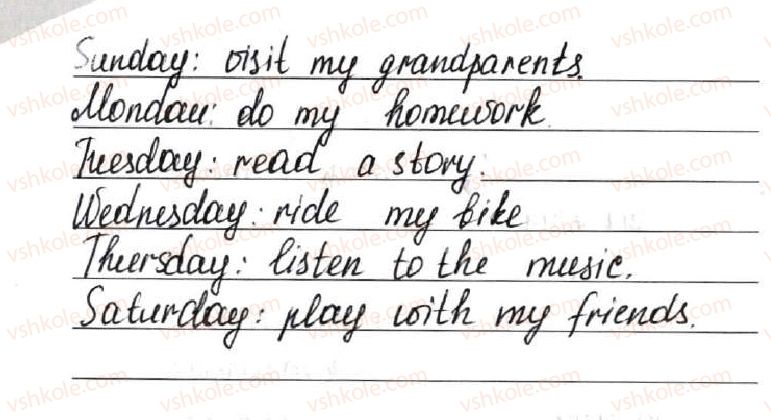 Sunday: visit my grandparents.
Monday: do my homework.
Tuesday: read a story.
Wednesday: ride my bike
Thursday: listen to the music.
Saturday: play with my friends.
vshkole.com